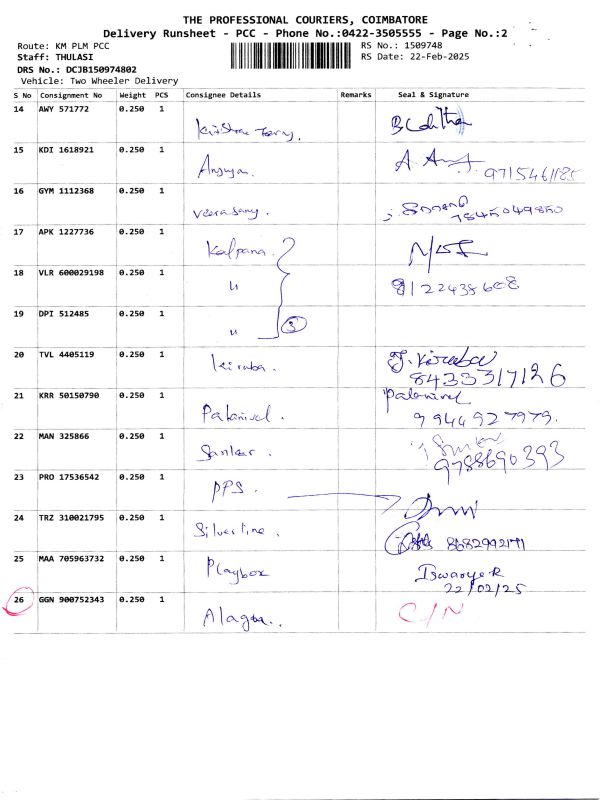 THE PROFESSIONAL COURIERS, COIMBATORE
Delivery Runsheet - PCC - Phone No.:0422-3505555 - Page No.:2
Route: KM PLM PCC RS No.: 1509748
Staff: THULASI RS Date: 22-Feb-2025
DRS No.: DCJB150974802
Vehicle: Two Wheeler Delivery
S No Consignment No Weight PCS Consignee Details Remarks Seal & Signature
14 AWY 571772 0.250 1
15 KDI 1618921 0.250 1
16 GYM 1112368 0.250 1
Veerasamy. 7845049850
17 APK 1227736 0.250 1
Kalpana.
18 VLR 600029198 0.250 1
" 8122438608
19 DPI 512485 0.250 1
" 3
20 TVL 4405119 0.250 1
Kiruba. J. Kiruba
8433317126
21 KRR 50150790 0.250 1 Palanivel
Palanivel. 9944927979.
22 MAN 325866 0.250 1
Sanker. 9788690393
23 PRO 17536542 0.250 1
PPS.
24 TRZ 310021795 0.250 1
Silverline.
25 MAA 705963732 0.250 1
Playbox Iswarya R
22/02/25
26 GGN 900752343 0.250 1 C/N